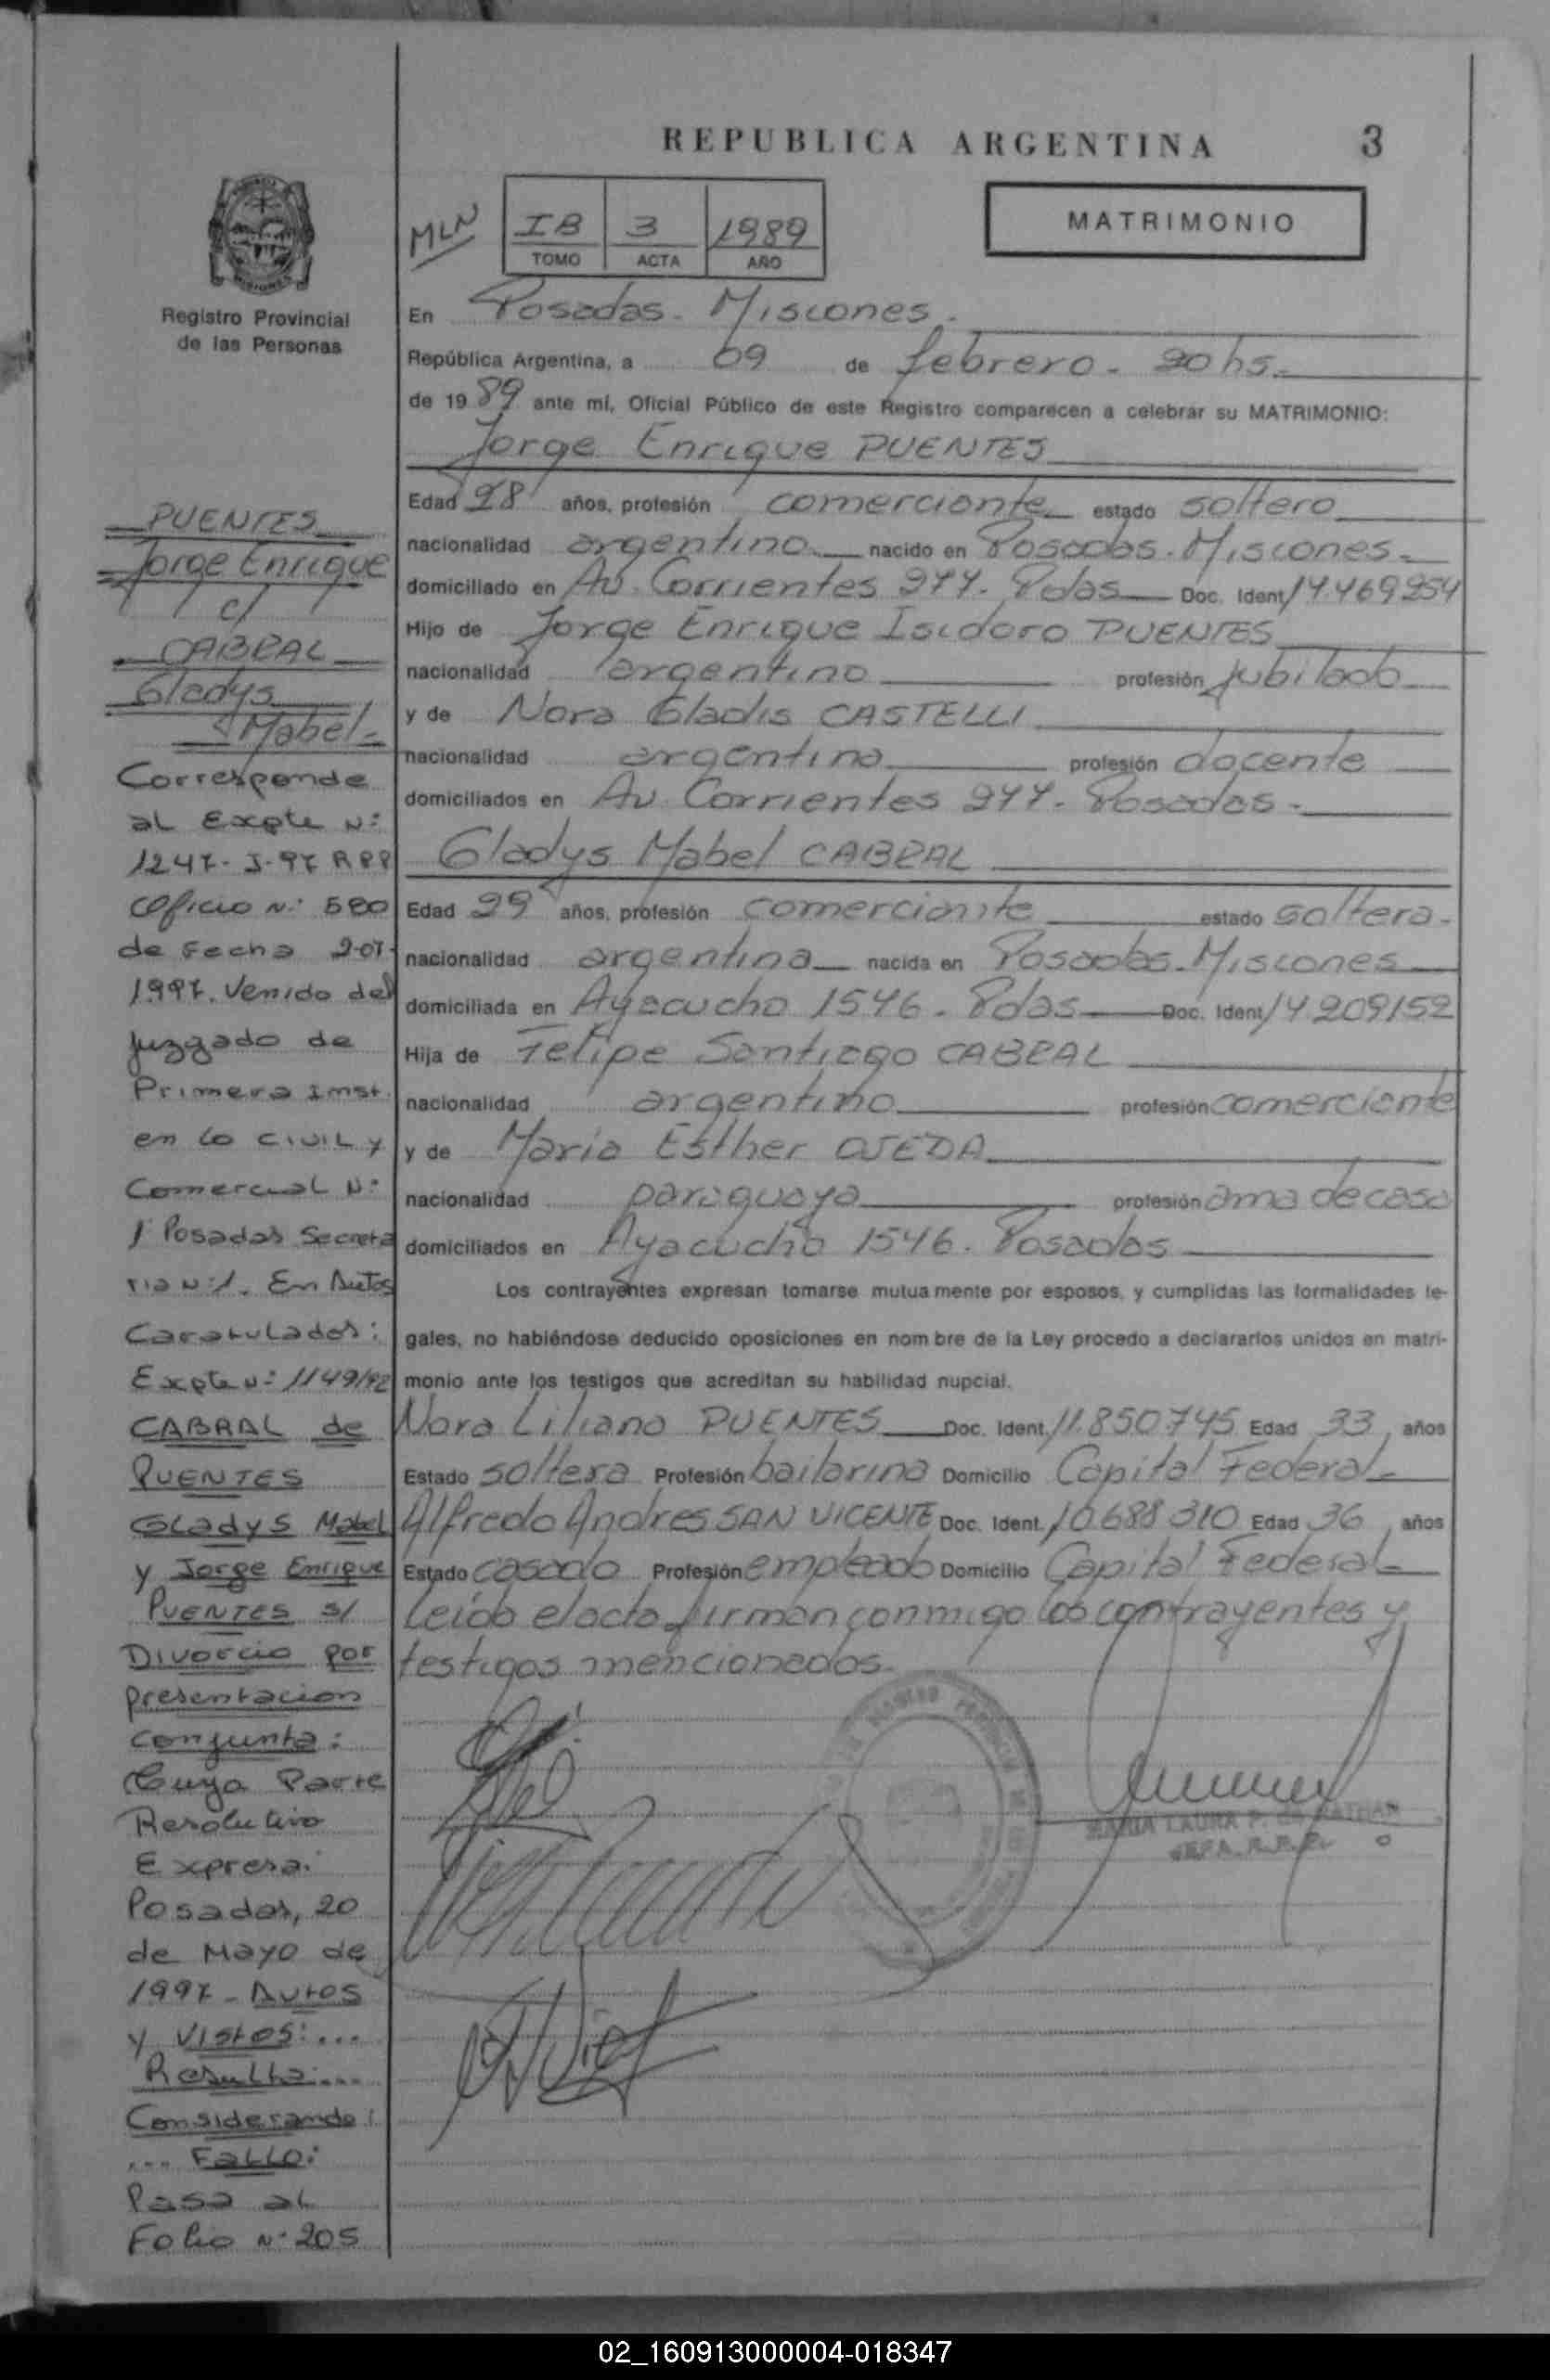 REPUBLICA ARGENTINA 3
MLN
IB 3 1989
TOMO ACTA AÑO
MATRIMONIO
Registro Provincial
de las Personas
En Posadas. Misiones.
República Argentina, a 09 de febrero. 20 hs.
de 1989 ante mí, Oficial Público de este Registro comparecen a celebrar su MATRIMONIO:
Jorge Enrique PUENTES
Edad 28 años, profesión comerciante estado soltero
nacionalidad argentino nacido en Posadas. Misiones.
domiciliado en Av. Corrientes 277. Pdas Doc. Ident. 14.469254
Hijo de Jorge Enrique Isidoro PUENTES
nacionalidad argentino profesión jubilado
y de Nora Gladis CASTELLI
nacionalidad argentina profesión docente
domiciliados en Av. Corrientes 277. Posadas.
Gladys Mabel CABRAL
Edad 29 años, profesión comerciante estado soltera.
nacionalidad argentina nacida en Posadas. Misiones
domiciliada en Ayacucho 1546. Pdas Doc. Ident. 14209152
Hija de Felipe Santiago CABRAL
nacionalidad argentino profesión comerciante
y de Maria Esther OJEDA
nacionalidad paraguaya profesión ama de casa
domiciliados en Ayacucho 1546. Posadas
Los contrayentes expresan tomarse mutuamente por esposos, y cumplidas las formalidades le-
gales, no habiéndose deducido oposiciones en nombre de la Ley procedo a declararlos unidos en matri-
monio ante los testigos que acreditan su habilidad nupcial.
Nora Liliana PUENTES Doc. Ident. 11.850745 Edad 33 años
Estado soltera Profesión bailarina Domicilio Capital Federal
Alfredo Andres SAN VICENTE Doc. Ident. 10688310 Edad 36 años
Estado casado Profesión empleado Domicilio Capital Federal
leido el acta firman conmigo los contrayentes y
testigos mencionados.
MARIA LAURA P. de
JEFA R.P.P.
PUENTES
Jorge Enrique
c/
CABRAL
Gladys
Mabel
Corresponde
al Expte N:
1247-J-97 RPP
Oficio N: 580
de Fecha 2-07-
1997. Venido del
Juzgado de
Primera Inst.
en lo Civil y
Comercial N:
1 Posadas Secreta
ria N:1. En Autos
Caratulados:
Expte N: 1149/92
CABRAL de
PUENTES
Gladys Mabel
y Jorge Enrique
PUENTES s/
Divorcio por
presentacion
conjunta:
Cuya Parte
Resolutiva
Expresa:
Posadas, 20
de Mayo de
1997 - Autos
y Vistos: ...
Resulta: ...
Considerando:
... Fallo:
Pasa al
Folio N: 205
02_160913000004-018347